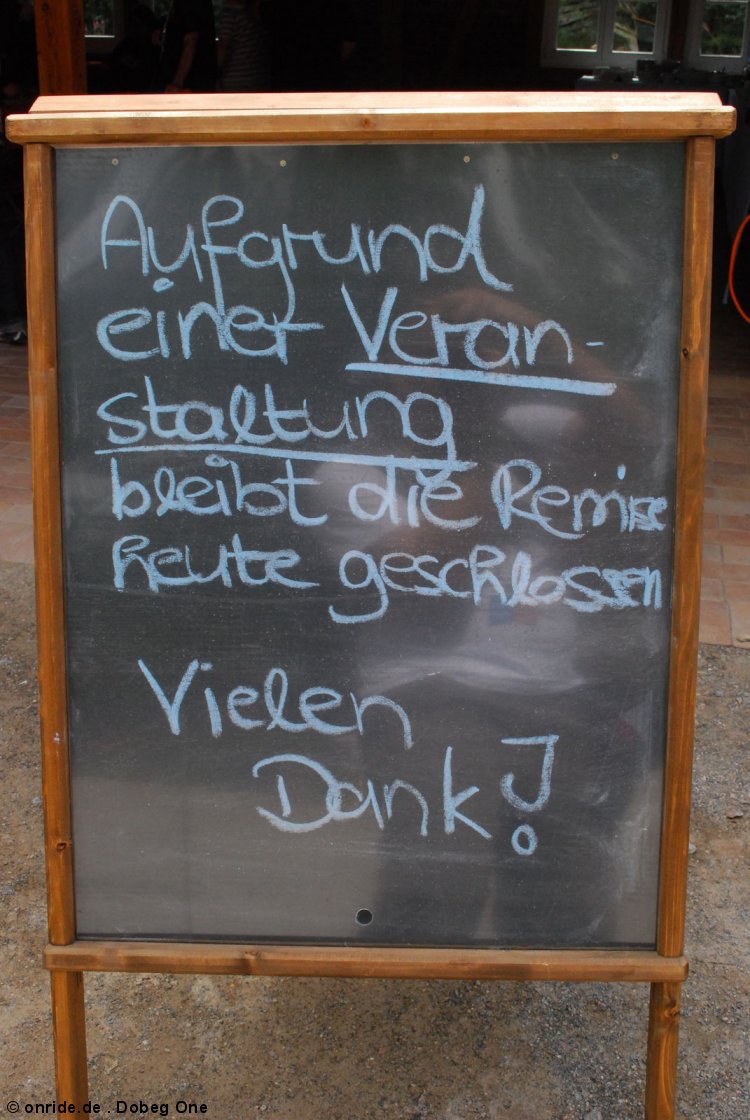 Aufgrund
einer Veran-
staltung
bleibt die Remise
heute geschlossen
Vielen
Dank!
© onride.de . Dobeg One